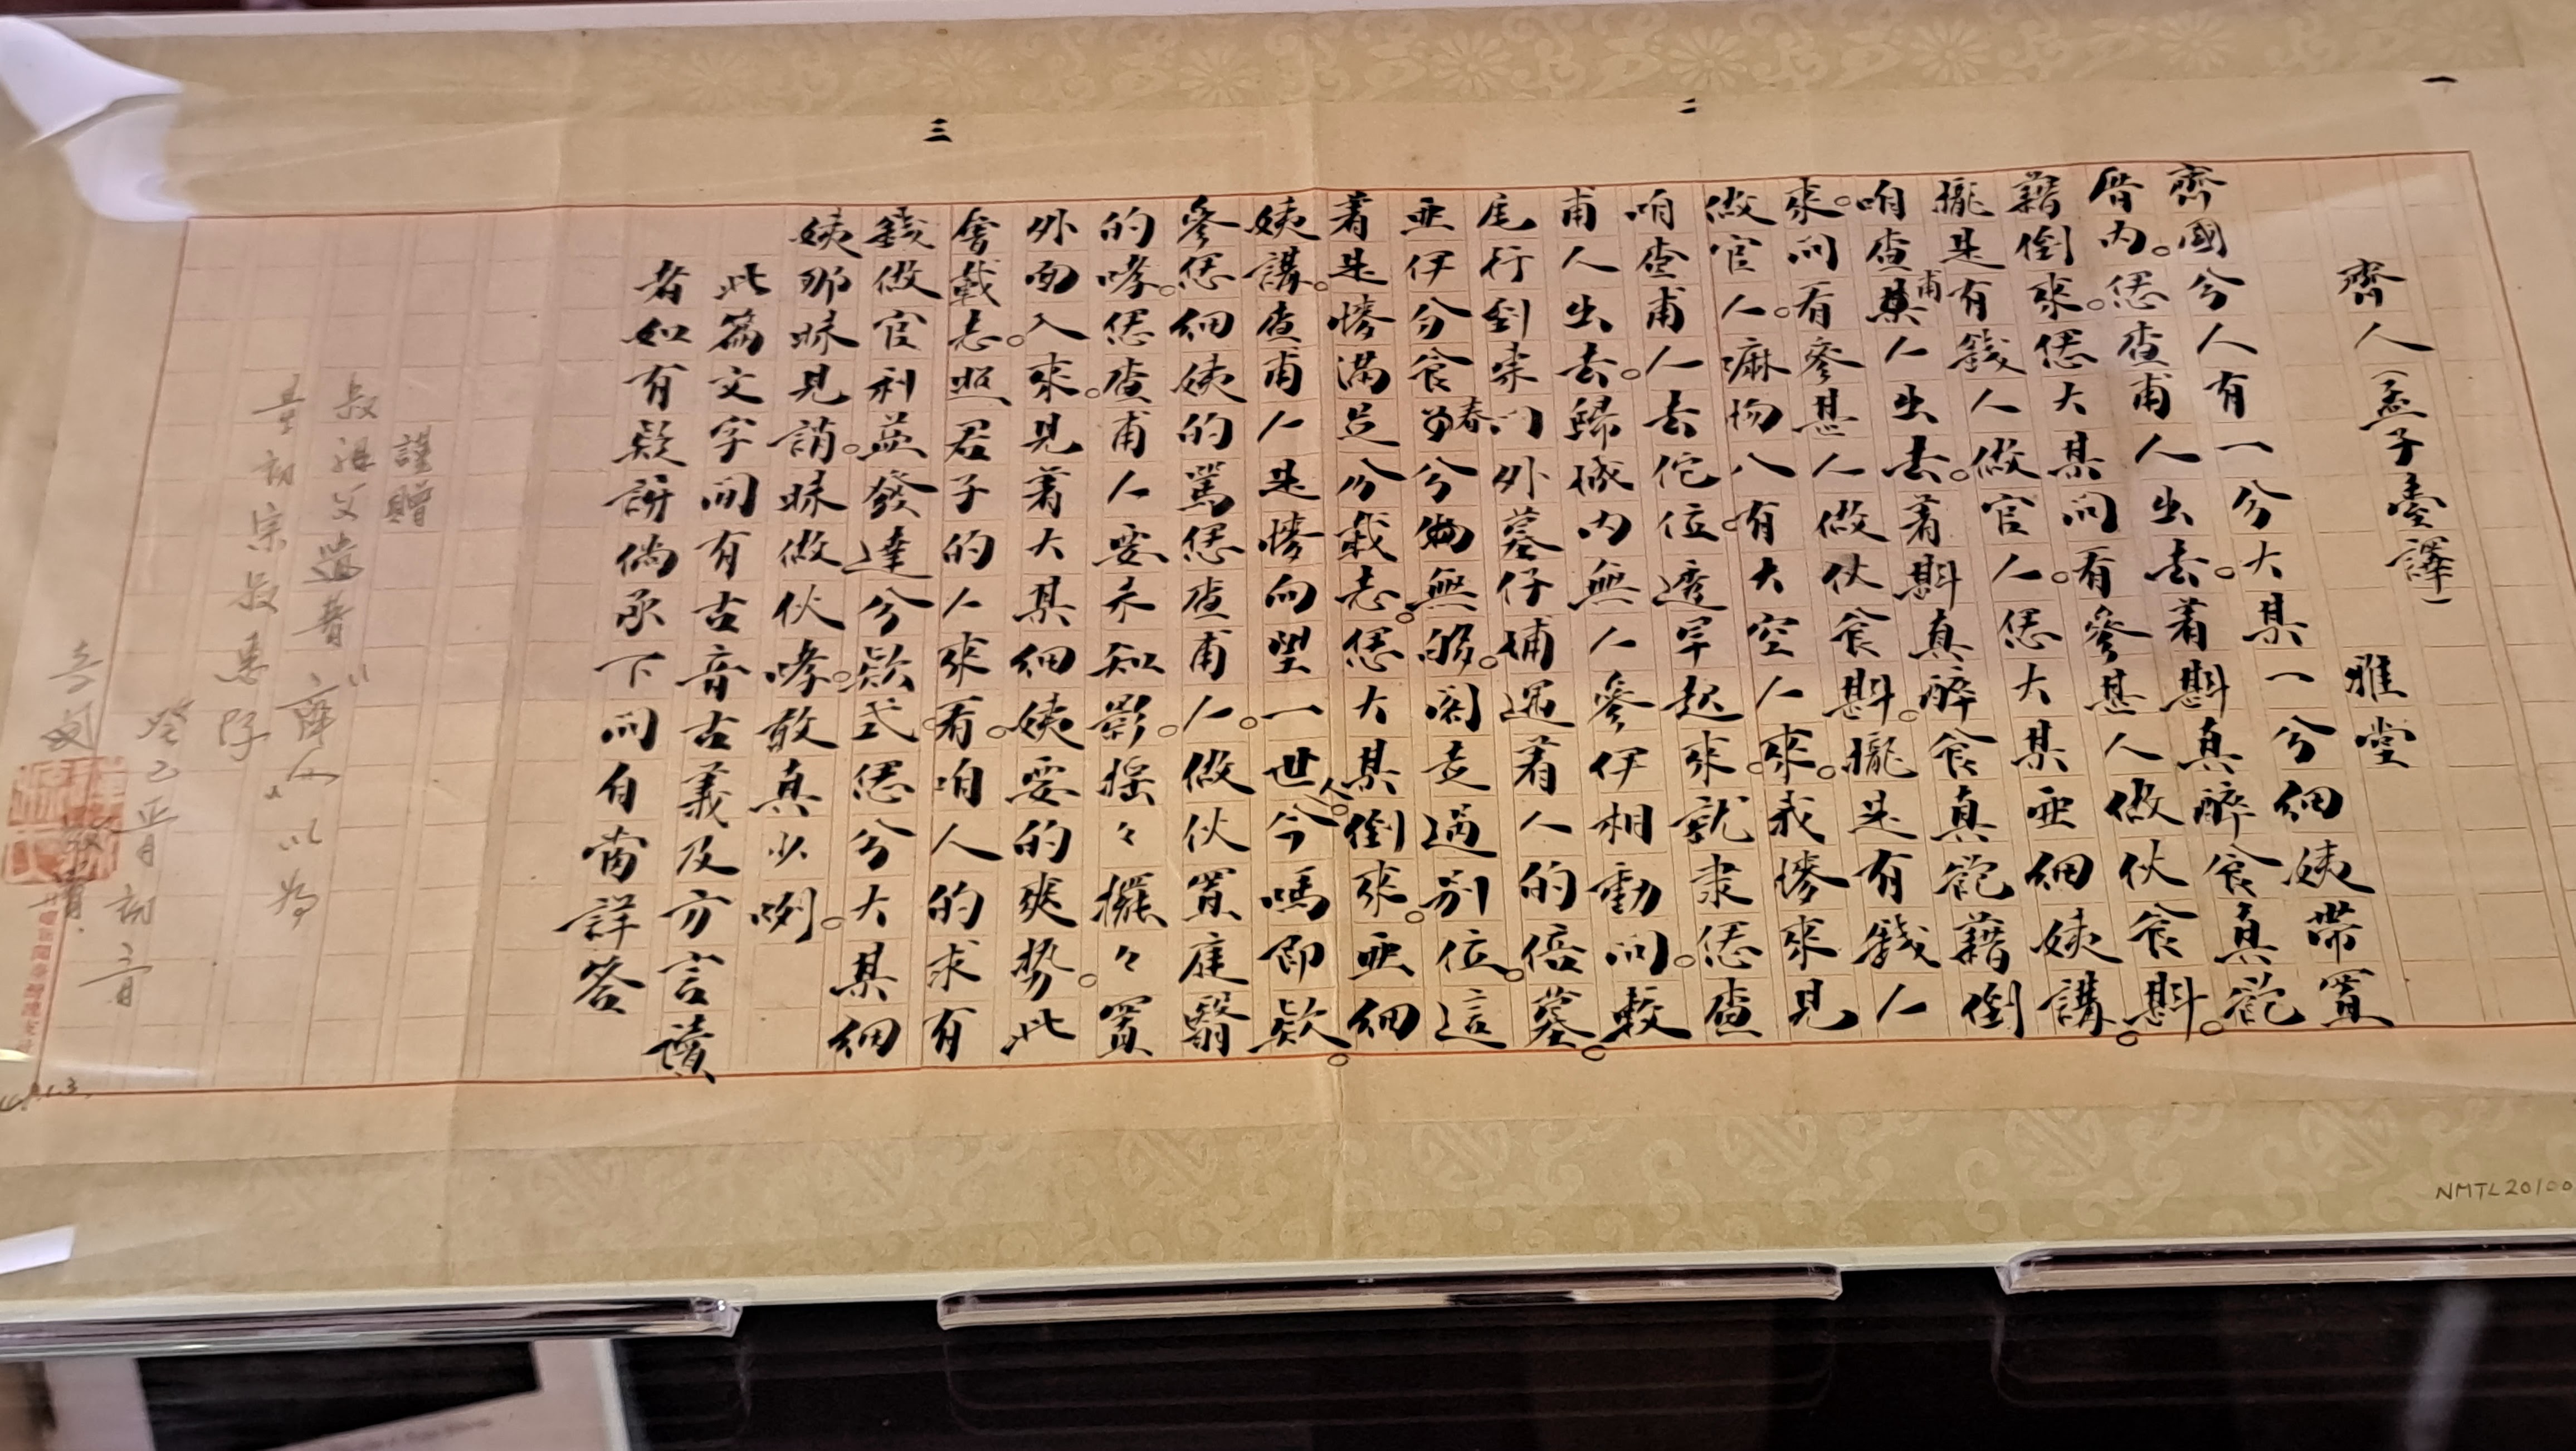 一
二
三
齊人（孟子臺譯）　雅堂
齊國兮人有一兮大某一兮細姨帶置
厝内。恁查甫人出去。着斟真醉食真飽
藉倒來。恁大某問有參甚人做伙食斟。
攏是有錢人做官人。恁大某亜細姨講。
咱查甫人出去。着斟真醉食真飽藉倒
來。問看參甚人做伙食斟。攏是有錢人
做官人。嘛怮八有大空人來。我慘來見
咱查甫人去佗位。透早起來就隶恁查
甫人出去。歸城内無人參伊相動問。較
尾行到東門外墓仔埔遇着人的倍墓。
亜伊兮食春兮物無夠。閣走過別位。這
着是慘滿足兮載志。恁大某倒來。亜細
姨講。查甫人是慘向望一世人。今嗎即款。
參恁細姨的罵恁查甫人。做伙置庭翳
的哮。恁查甫人要不知影。搖々擺々置
外面入來。見着大某細姨要的爽勢。此
會載志。照君子的人來看。咱人的求有
錢做官利益發達兮款式恁兮大某細
姨那昧見誚。昧做伙哮。敢真少咧。
此篇文字間有古音古義及方言讀
者如有疑訝倘承下問自當詳答
謹贈
叔祖父遺著"齊人"以為
宗叔惠存
敬贈
NMTL20100